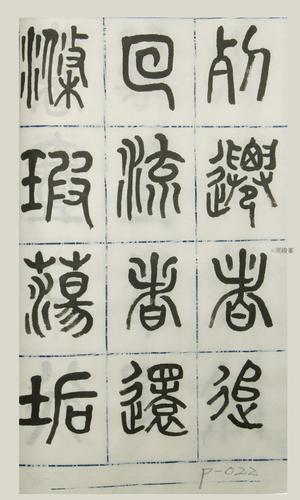 死遷者追
回流者還
滌瑕蕩垢
p-022